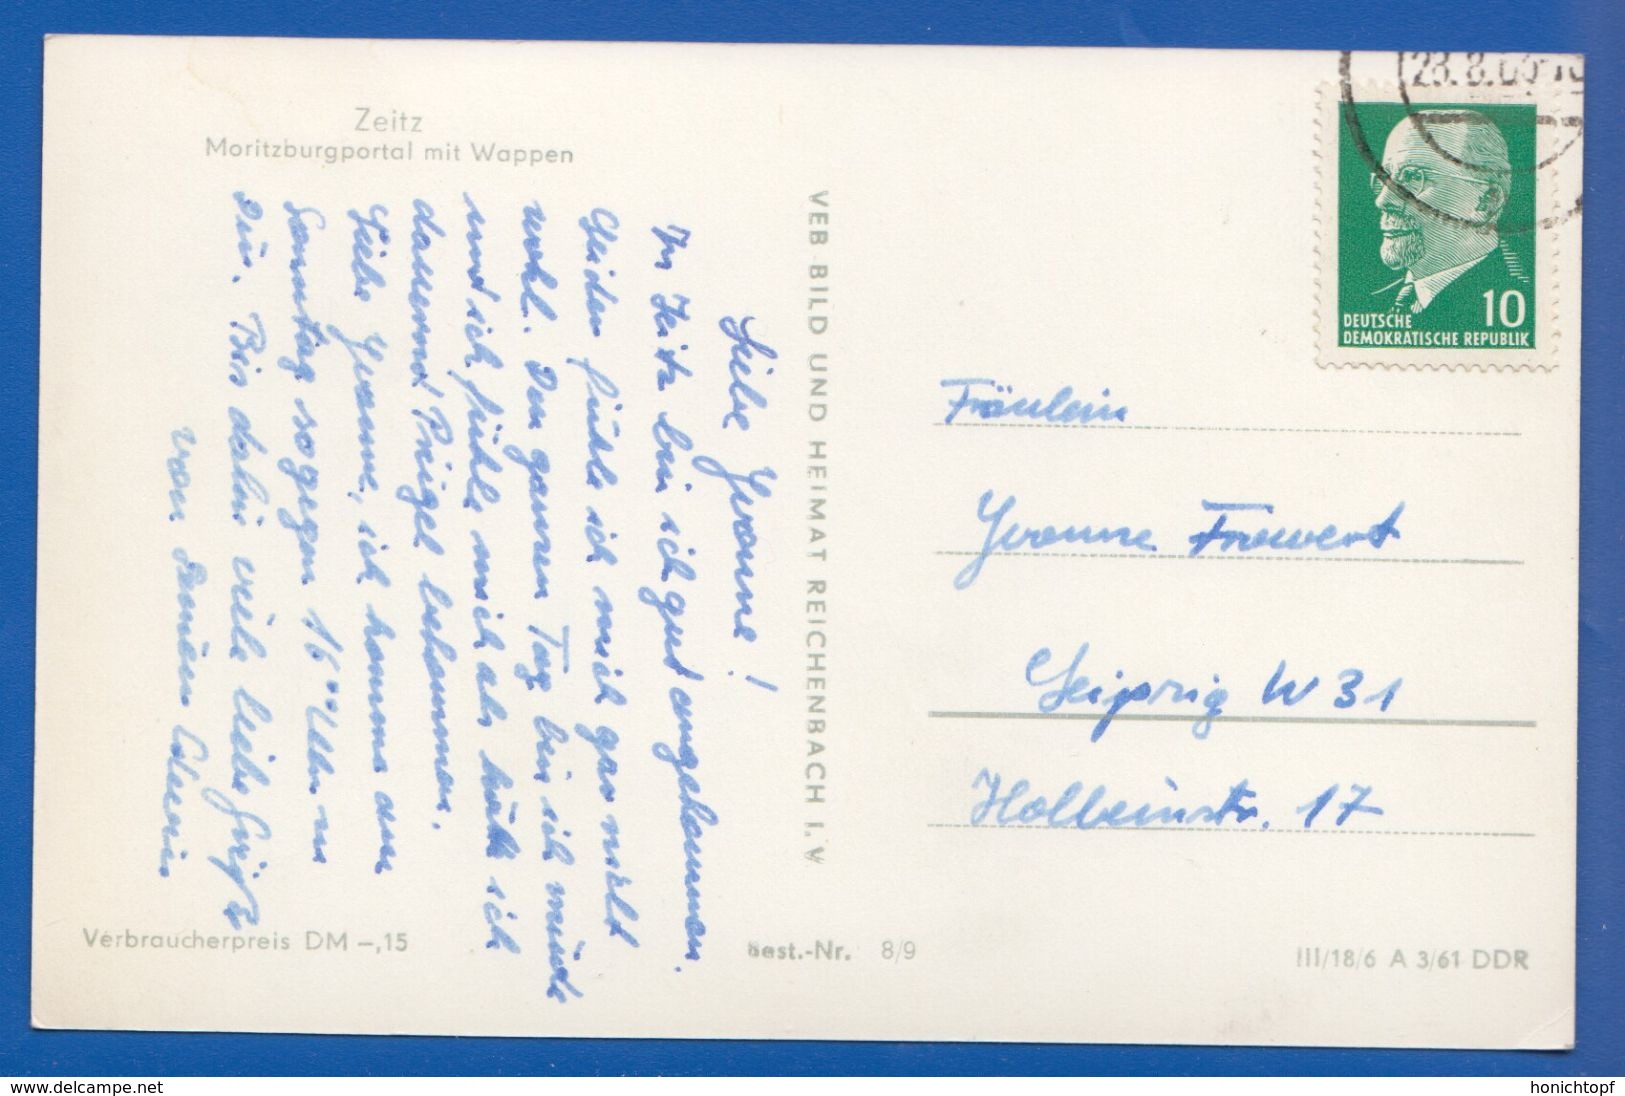 Zeitz
Moritzburgportal mit Wappen
Liebe Yvonne!
In Zeitz bin ich gut angekommen.
Leider fühle ich mich gar nicht
wohl. Den ganzen Tag bin ich müde
und ich fühle mich als hätte ich
dauernd Prügel bekommen.
Liebe Yvonne, ich komme am
Sonntag so gegen 16°° Uhr zu
Dir. Bis dahin viele liebe Grüße
von Deinen
VEB BILD UND HEIMAT REICHENBACH I. V.
DEUTSCHE
DEMOKRATISCHE REPUBLIK
10
Fräulein
Yvonne Frowert
Leipzig W 31
Holbeinstr. 17
Verbraucherpreis DM -,15
Best.-Nr. 8/9
III/18/6 A 3/61 DDR
www.delcampe.net
honichtopf